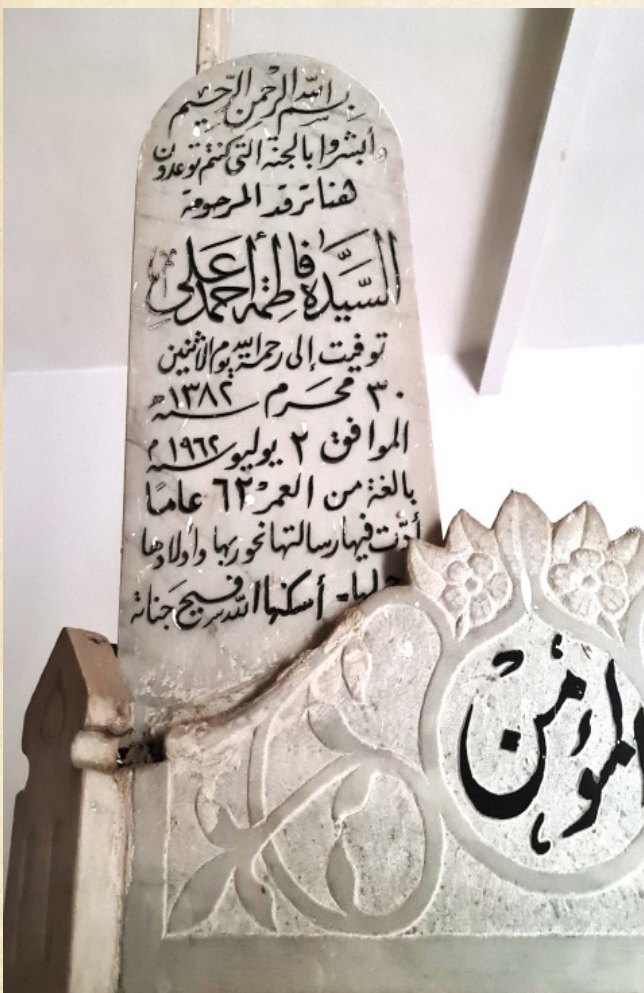 بسم الله الرحمن الرحيم
وأبشروا بالجنة التي كنتم توعدون
هنا ترقد المرحومة
السيّدة فاطمة أحمد علي
توفيت إلى رحمة الله يوم الاثنين
٣٠ محرم سنة ١٣٨٢ هـ
الموافق ٢ يوليو سنة ١٩٦٢ م
بالغة من العمر ٦٢ عامًا
أدّت فيها رسالتها نحو ربها وأولادها
أسكنها الله فسيح جناته
المؤمن